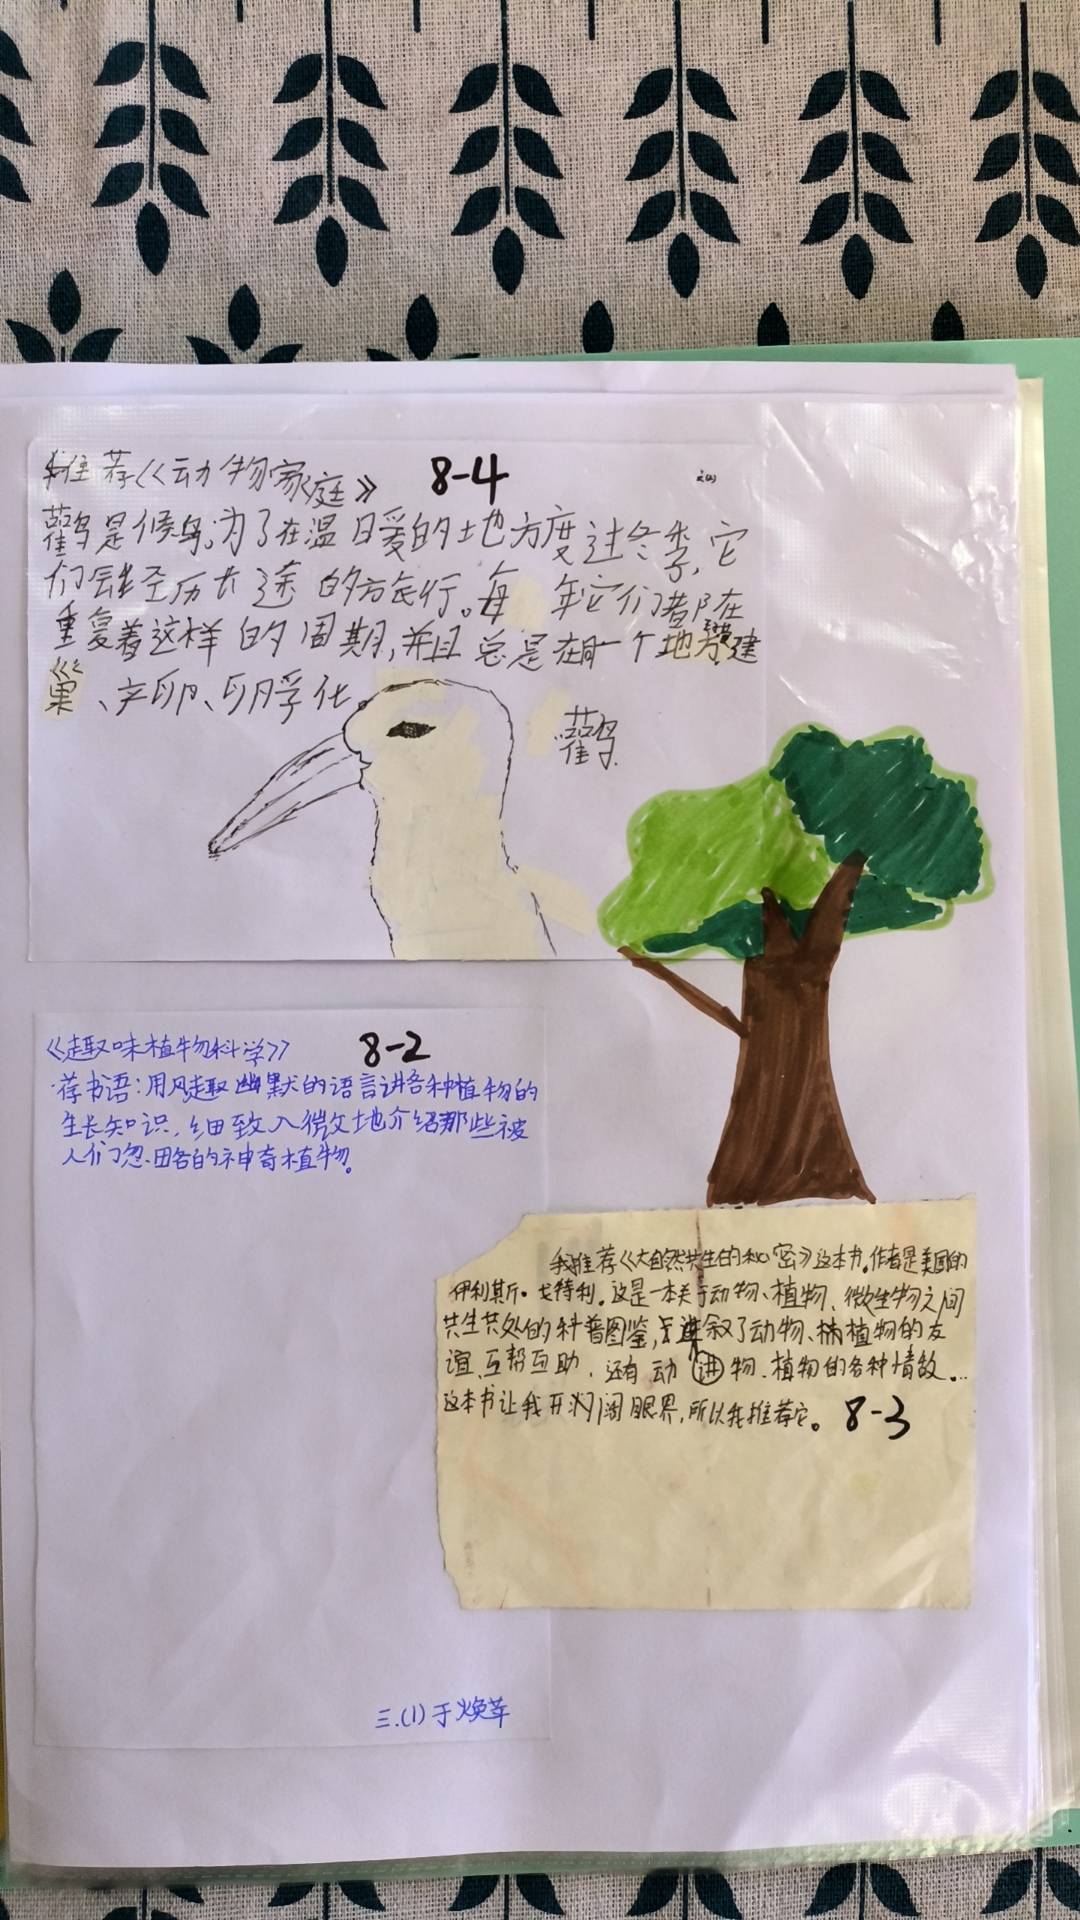 推荐《动物家庭》 8-4
鹳是候鸟。为了在温暖的地方度过冬季,它
们会经历长途的旅行。每年它们都在
重复着这样的周期,并且总是在同一个地方建
巢、产卵、卵孵化。
鹳
《趣味植物科学》 8-2
荐书语:用风趣幽默的语言讲各种植物的
生长知识,细致入微地介绍那些被
人们忽略的神奇植物。
三.(1)于焕苹
我推荐《大自然共生的秘密》这本书。作者是美国的
伊利斯·戈特利。这是一本关于动物、植物、微生物之间
共生共处的科普图鉴,讲叙了动物、植物的友
谊、互帮互助,还有动物、植物的各种情敌…
这本书让我开阔眼界,所以我推荐它。 8-3